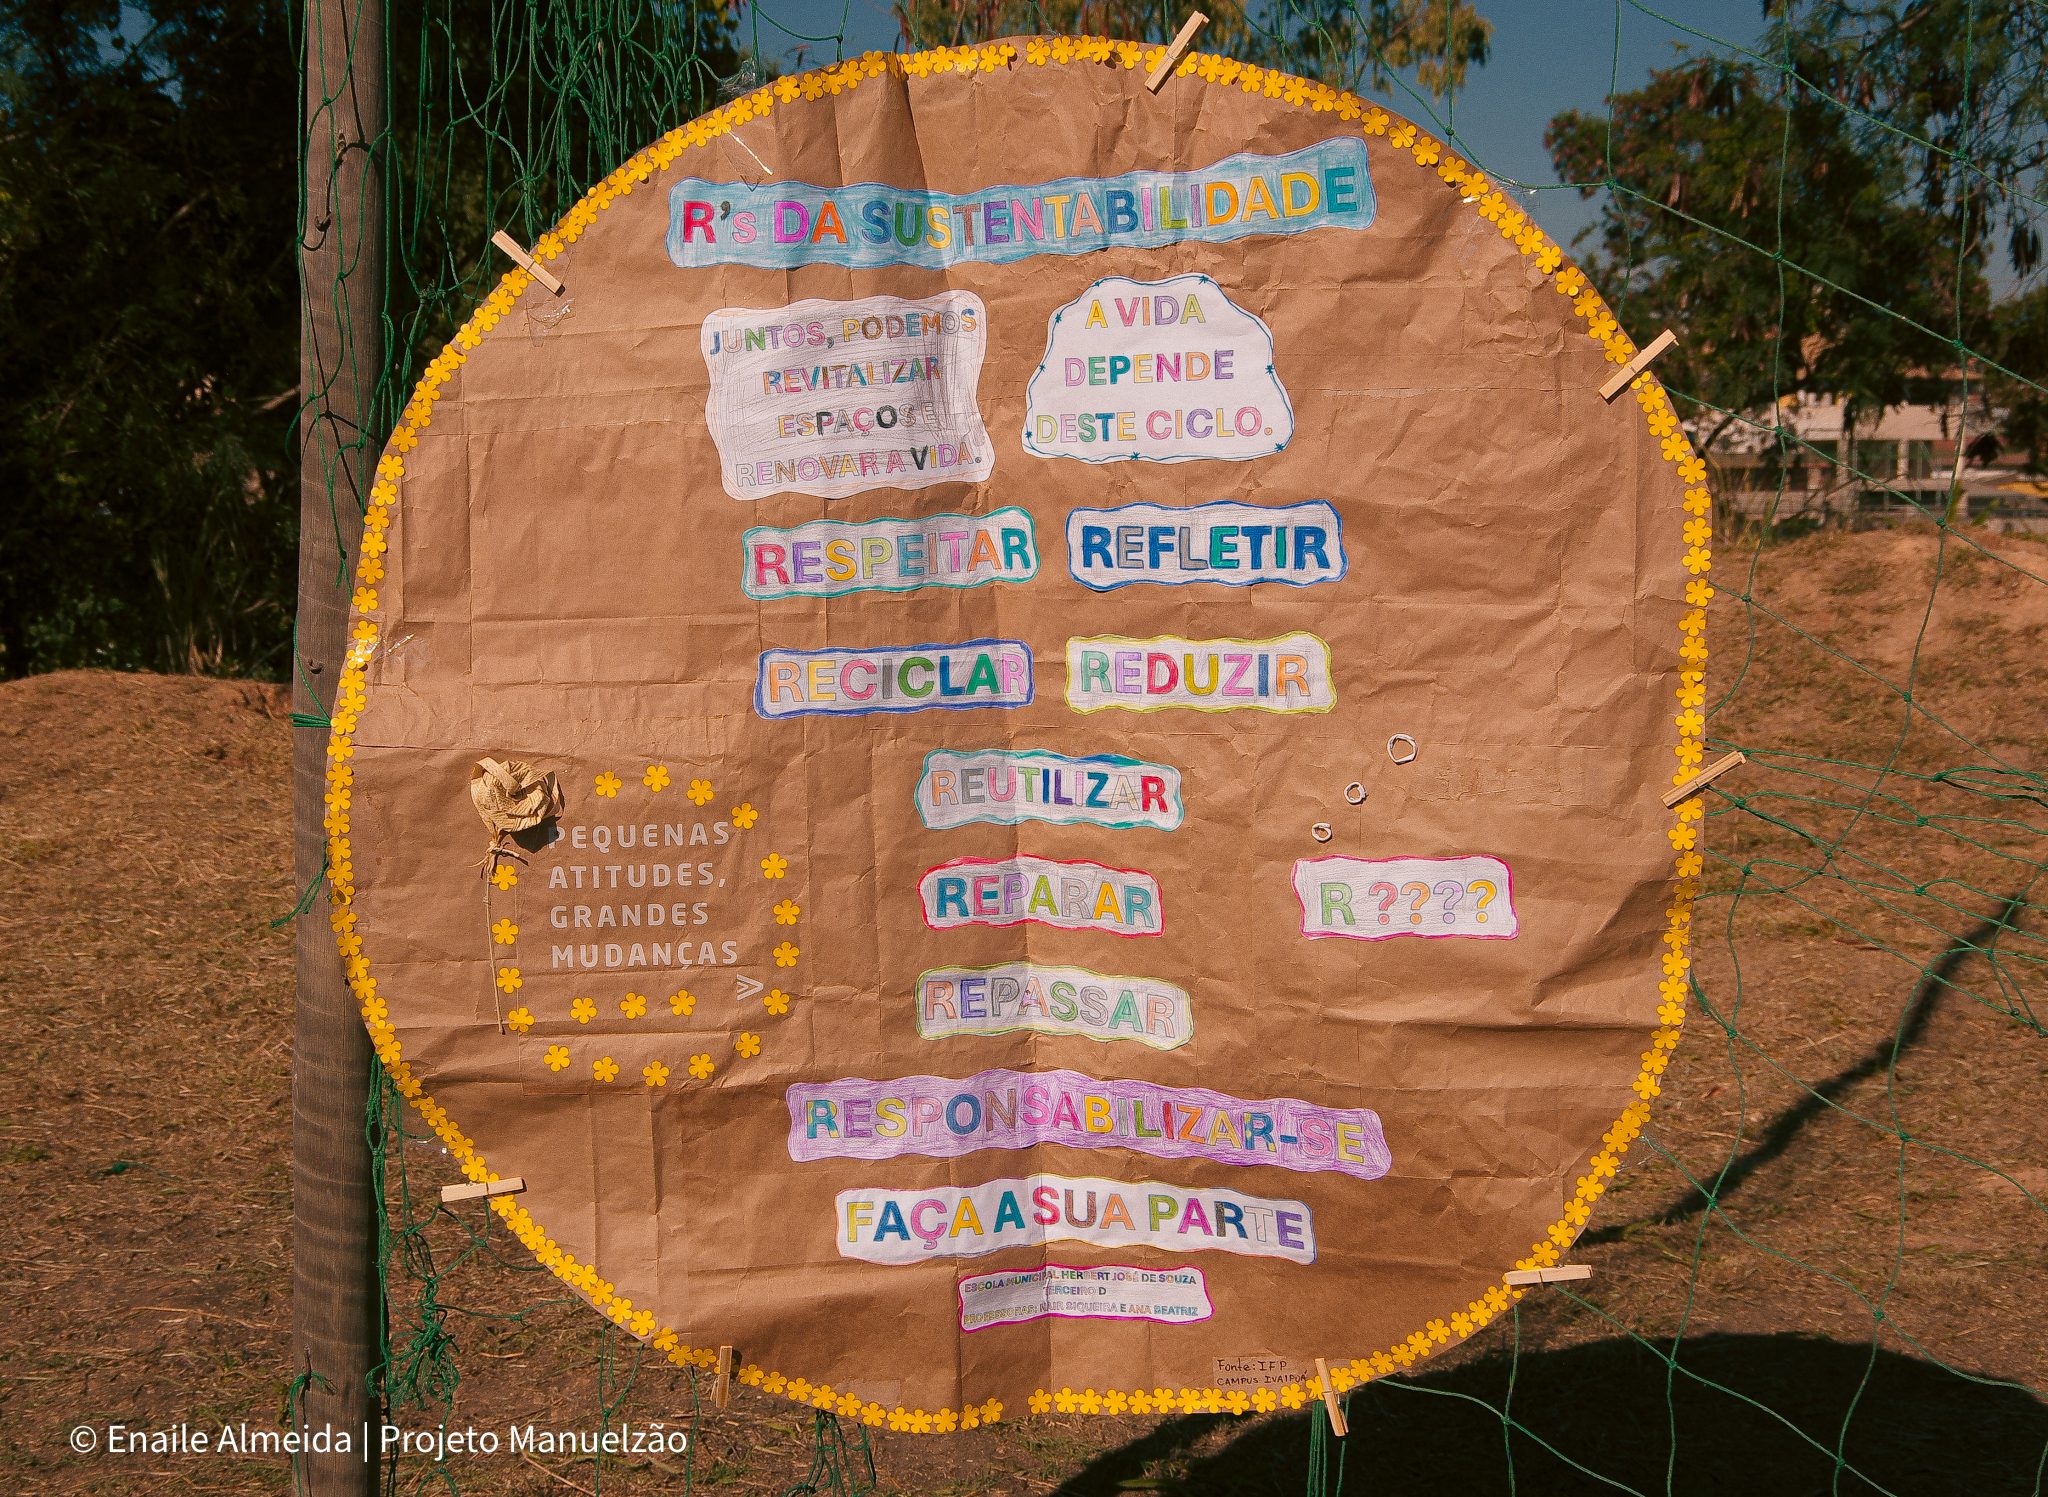 R's DA SUSTENTABILIDADE
JUNTOS, PODEMOS
REVITALIZAR
ESPAÇOS E
RENOVAR A VIDA.
A VIDA
DEPENDE
DESTE CICLO.
RESPEITAR
REFLETIR
RECICLAR
REDUZIR
REUTILIZAR
PEQUENAS
ATITUDES,
GRANDES
MUDANÇAS
REPARAR
R ????
REPASSAR
RESPONSABILIZAR-SE
FAÇA A SUA PARTE
ESCOLA MUNICIPAL HERBERT JOSÉ DE SOUZA
TERCEIRO D
NAIR SIQUEIRA E ANA BEATRIZ
Fonte: IFP
CAMPUS IVAIPOÁ
© Enaile Almeida | Projeto Manuelzão